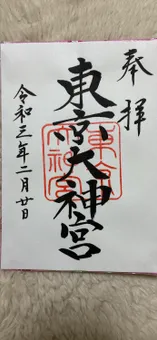 奉拝
東京大神宮
令和三年二月廿日